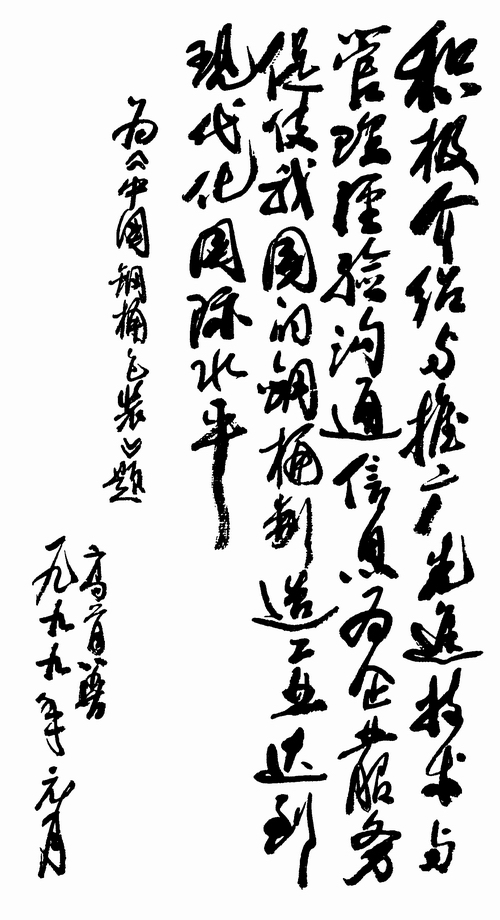 积极介绍与推广先进技术与
管理经验沟通信息为企业服务
促使我国的钢桶制造工业达到
现代化国际水平
为《中国钢桶包装》题
高首善
一九九九年元月